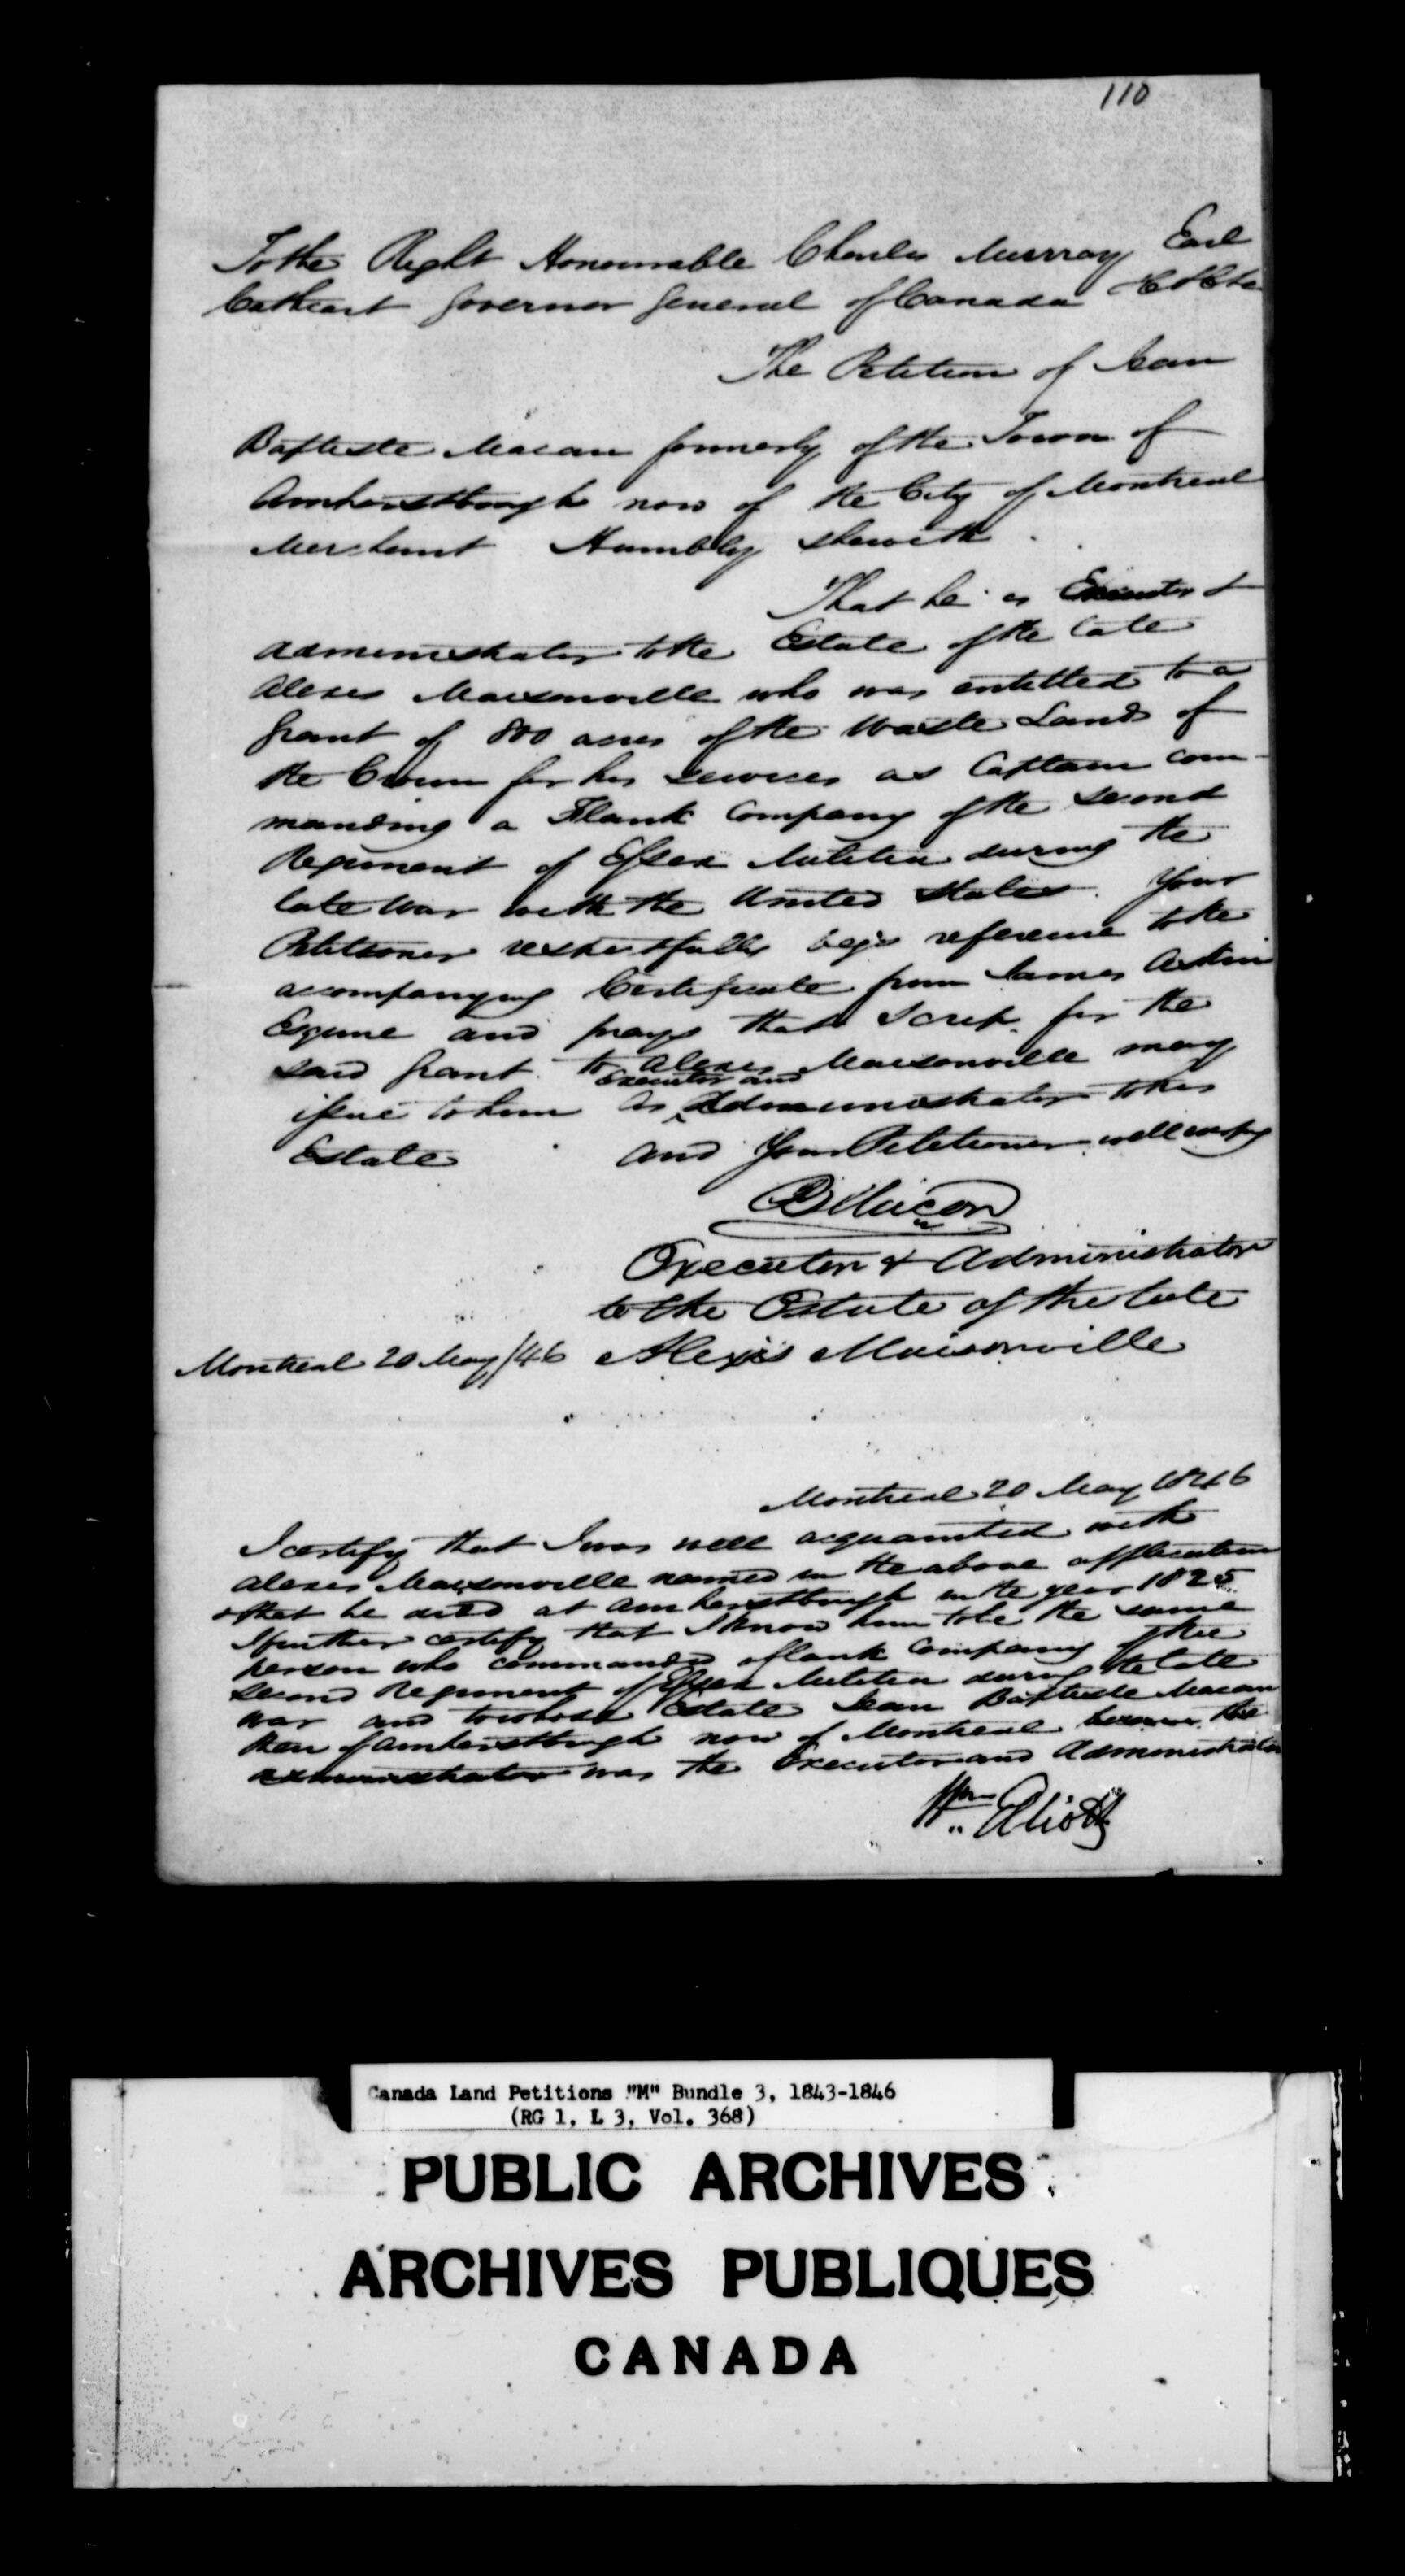 110
To the Right Honourable Charles Murray Earl
Cathcart Governor General of Canada &c &c &c
The Petition of Jean
Baptiste Macon formerly of the Town of
Amherstburgh now of the City of Montreal
Merchant Humbly sheweth.
That he is Executor &
Administrator to the Estate of the late
Alexis Maisonville who was entitled to a
Grant of 800 acres of the Waste Lands of
the Crown for his services as Captain com-
manding a Flank Company of the Second
Regiment of Essex Militia during the
late War with the United States. Your
Petitioner respectfully begs reference to the
accompanying Certificate from James
Esquire and prays that Scrip for the
said Grant to Alexis Maisonville may
issue to him as Executor and Administrator to his
Estate and Your Petitioner will ever pray
JB Macon
Executor & Administrator
to the Estate of the late
Montreal 20 May /46 Alexis Maisonville
Montreal 20 May 1846
I certify that I was well acquainted with
Alexis Maisonville named in the above application
& that he died at Amherstburgh in the year 1825
I further certify that I know him to be the same
person who commanded a flank Company of the
Second Regiment of Essex Militia during the late
War and to whose Estate Jean Baptiste Macon
then of Amherstburgh now of Montreal the
administrator was the Executor and Administrator
Wm Elliott
Canada Land Petitions "M" Bundle 3, 1843-1846
(RG 1, L 3, Vol. 368)
PUBLIC ARCHIVES
ARCHIVES PUBLIQUES
CANADA